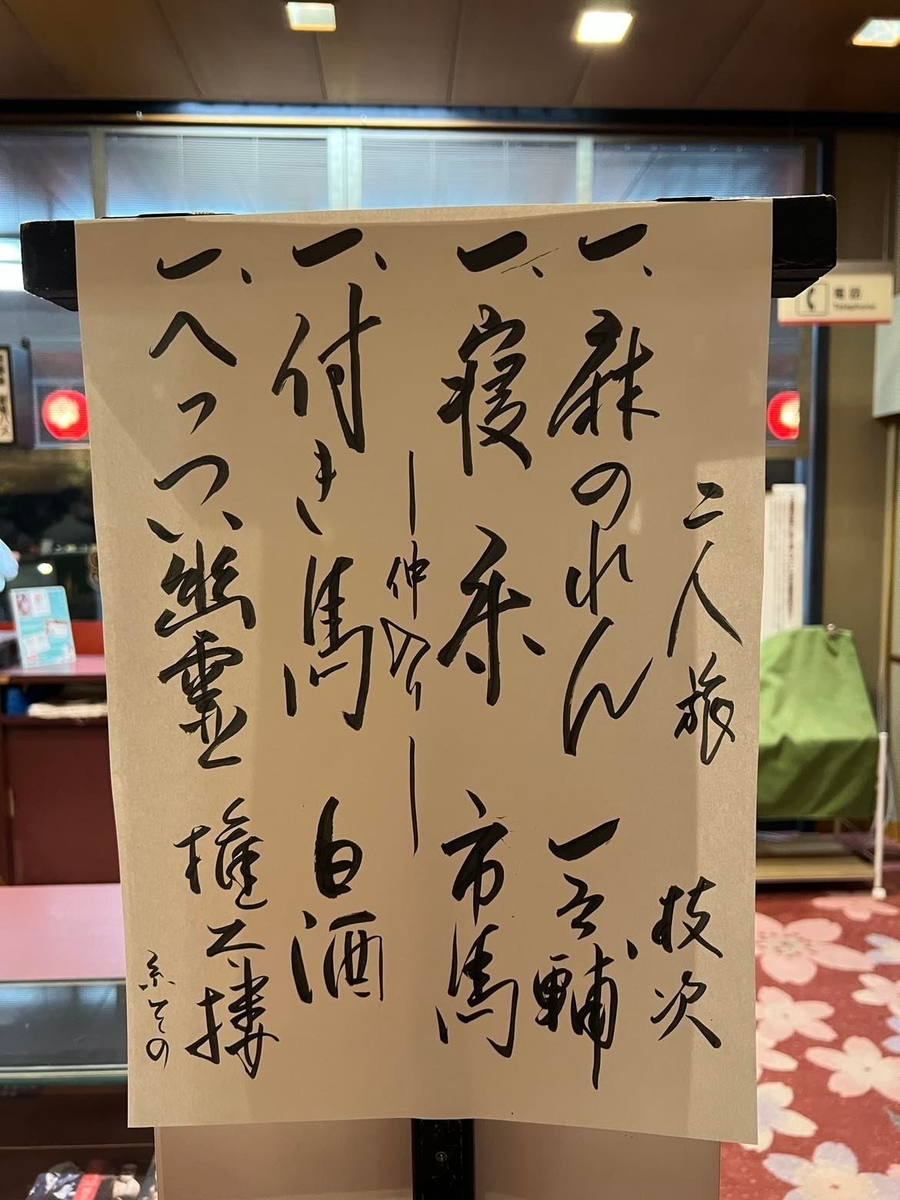 二人旅 枝次
一、麻のれん 一之輔
一、寝床 市馬
仲入り
一、付き馬 白酒
一、へっつい幽霊 権太楼
糸 その
電話
Telephone